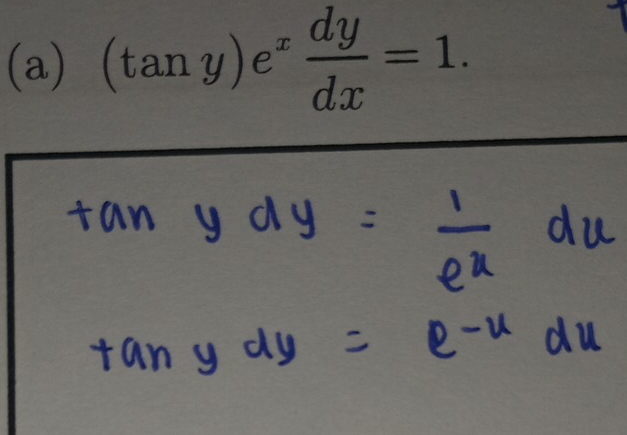 (a) (tan y)e^x dy/dx = 1.
tan y dy = 1/e^x dx
tan y dy = e^-x dx